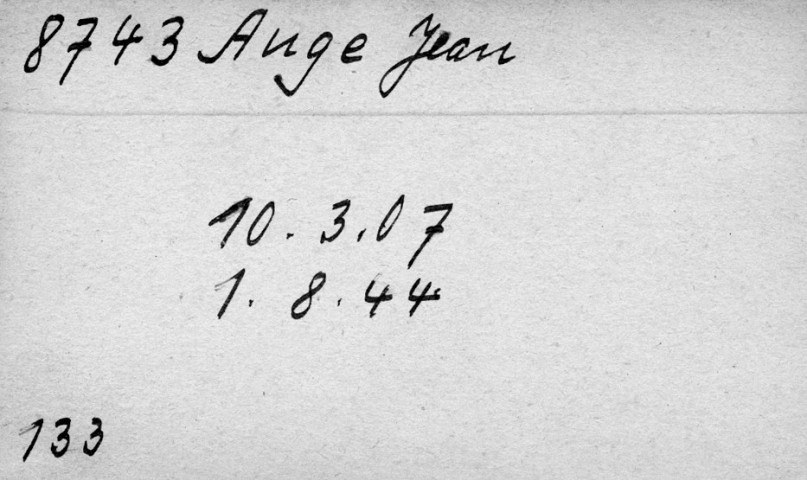 8743 Ange Jean
10. 3.07
1. 8.44
133